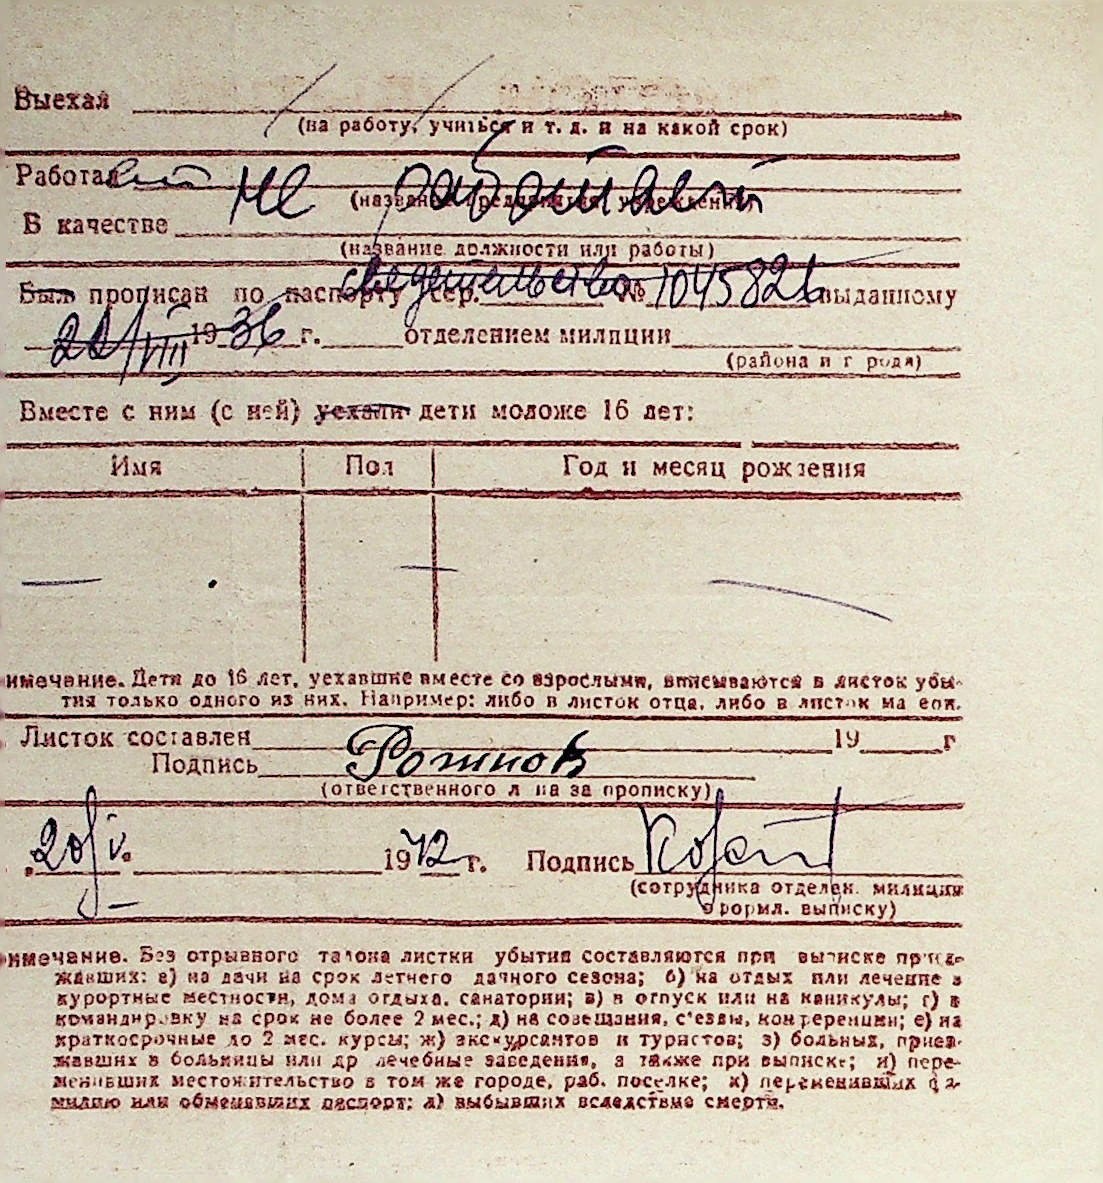 Выехал
(на работу, учиться и т. д. и на какой срок)
Работает не работает
(название предприятия, учреждения)
В качестве
(название должности или работы)
Был прописан по паспорту свидетельство сер. № 1045826 выданному
22/VIII 1936 г. отделением милиции
(района и г рода)
Вместе с ним (с ней) уехали дети моложе 16 лет:
Имя Пол Год и месяц рождения
— — —
имечание. Дети до 16 лет, уехавшие вместе со взрослыми, вписываются в листок убы-
тия только одного из них. Например: либо в листок отца, либо в листок ма ери.
Листок составлен 19 г
Подпись
(ответственного л ца за прописку)
20/V. 1972 г. Подпись
(сотрудника отделен. милиции
оформл. выписку)
имечание. Без отрывного талона листки убытия составляются при выписке приез-
жавших: а) на дачи на срок летнего дачного сезона; б) на отдых или лечение в
курортные местности, дома отдыха, санатории; в) в отпуск или на каникулы; г) в
командировку на срок не более 2 мес.; д) на совещания, с'езды, конференции; е) на
краткосрочные до 2 мес. курсы; ж) экскурсантов и туристов; з) больных, приез-
жавших в больницы или др лечебные заведения, а также при выписке; и) пере-
менивших местожительство в том же городе, раб. поселке; к) переменивших фа-
милию или обменявших паспорт; л) выбывших вследствие смерти.